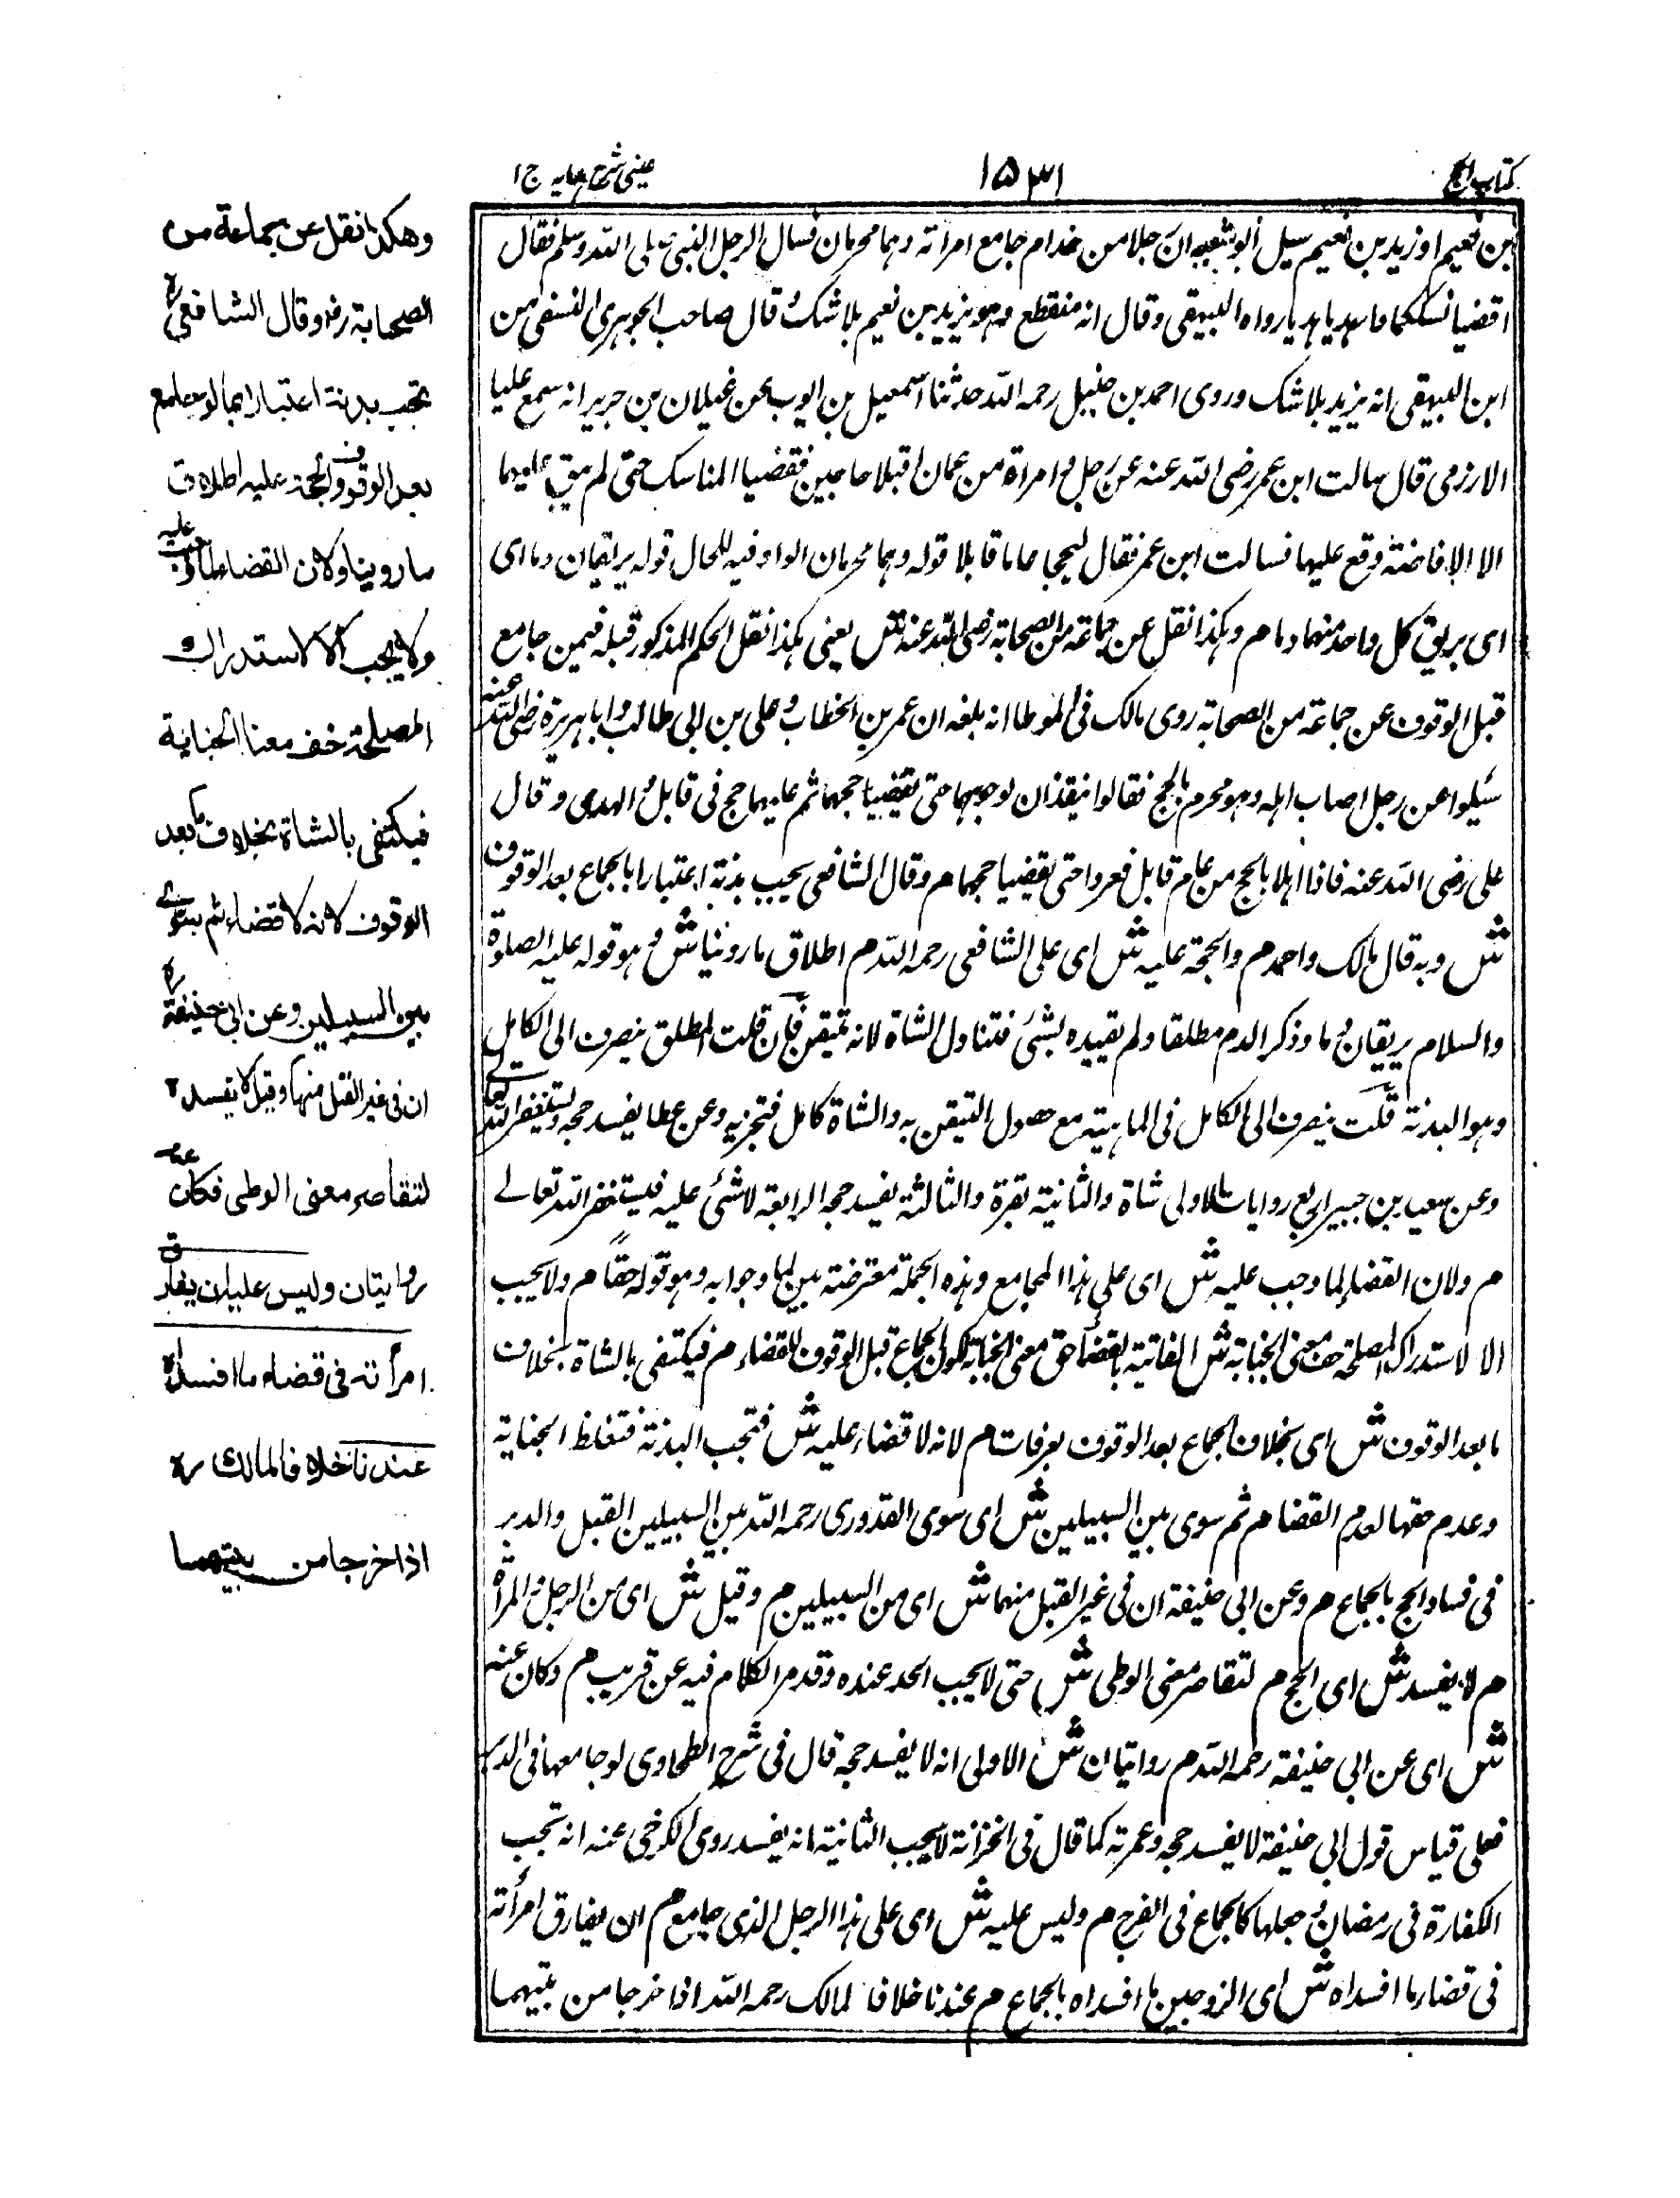 كتاب الحج
١٥٣١
عينى شرح هدايه ج ١
بن نعيم او زيد بن نعيم سيل ابو شعبه ان رجلا من خدام جامع امراته وهما محرمان فسال الرجل النبى صلى الله وسلم فقال
اقضيا نسككما واهديا هديا رواه البيهقى وقال انه منقطع وهو يزيد بن نعيم بلا شك قال صاحب الجوهرى النسفى من
ابن البيهقى انه يزيد بلا شك وروى احمد بن حنبل رحمه الله حدثنا اسمعيل بن ايوب عن غيلان بن جرير انه سمع عليا
الازدى قال سالت ابن عمر رضى الله عنه عن رجل وامراة من عمان اقبلا حاجين فقضيا المناسك حتى لم يبق عليهما
الا الافاضة وقع عليها فسالت ابن عمر فقال ليحجا عاما قابلا قوله وهما محرمان الواو فيه للحال قوله يريقان دما اى
اى يريق كل واحد منهما دما م وهكذا نقل عن جماعة من الصحابة رضى الله عنه ش يعنى هكذا نقل الحكم المذكور قبله فيمن جامع
قبل الوقوف عن جماعة من الصحابة روى مالك فى الموطا انه بلغه ان عمر بن الخطاب وعلى بن ابى طالب وابا هريرة رضى الله عنه
سئلوا عن رجل اصاب اهله وهو محرم بالحج فقالوا ينفذان لوجههما حتى يقضيا حجهما ثم عليهما حج فى قابل والهدى وقال
على رضى الله عنه فاذا اهلا بالحج من عام قابل حتى يقضيا حجهما م وقال الشافعى يجب بدنة اعتبارا بالجماع بعد الوقوف
ش وبه قال مالك واحمد م والحجة عليه ش اى على الشافعى رحمه الله م اطلاق ما روينا ش وهو قوله عليه الصلوة
والسلام يريقان دما وذكر الدم مطلقا ولم يقيده بشئ فتناول الشاة لانه متيقن فان قلت المطلق ينصرف الى الكامل
وهو البدنة قلت ينصرف الى الكامل فى الماهية مع حصول التيقن به والشاة كامل فتجزيه وعن عطا يفسد حجه ويستغفر الله تعالى
وعن سعيد بن جبير اربع روايات الاولى شاة والثانية بقرة والثالثة يفسد حجه الرابعة لا شئ عليه فيستغفر الله تعالے
م ولان القضاء لما وجب عليه ش اى على هذا المجامع وهذه الجملة معترضة بين لما وجوابه وهو قوله حقا م ولا يجب
الا لاستدراك المصلحة خف معنى الجناية ش الفائتة بالقضاء خف معنى الجناية لكون الجماع قبل الوقوف للقضاء م فيكتفى بالشاة بخلاف
ما بعد الوقوف ش اى بخلاف الجماع بعد الوقوف بعرفات م لانه لا قضاء عليه ش فتجب البدنة فتغلظ الجناية
وعدم خفها لعدم القضا م ثم سوى بين السبيلين ش اى سوى القدورى رحمه الله بين السبيلين القبل والدبر
فى فساد الحج بالجماع م وعن ابى حنيفة ان فى غير القبل منهما ش اى من السبيلين م وقيل ش اى من الرجل والمرأة
م لا يفسد ش اى الحج م لتقاصر معنى الوطى ش حتى لا يجب الحد عنده وقد مر الكلام فيه عن قريب م وكان عنه
ش اى عن ابى حنيفة رحمه الله م روايتان ش الاولى انه لا يفسد حجه قال فى شرح الطحاوى لو جامعها فى الدبر
فعلى قياس قول ابى حنيفة لا يفسد حجه وعمرته كما قال فى الخزانة لا يجب الثانية انه يفسد روى الكرخى عنه انه تجب
الكفارة فى رمضان وجعلها كالجماع فى الفرج م وليس عليه ش اى على هذا الرجل الذى جامع م ان يفارق امرأته
فى قضاء ما افسداه ش اى الزوجين ما افسداه بالجماع م عندنا خلافا لمالك رحمه الله اذا خرجا من بيتهما
وهكذا نقل عن جماعة من
الصحابة رض وقال الشافعى ره
تجب بدنة اعتبارا بما لو جامع
بعد الوقوف والحجة عليه اطلاق
ما روينا ولان القضاء لما وجب عليه
ولا يجب الا لاستدراك
المصلحة خف معنا الجناية
فيكتفى بالشاة بخلاف ما بعد
الوقوف لانه لا قضاء ثم سوى
بين السبيلين وعن ابى حنيفة ره
ان فى غير القبل منهما وقيل لا يفسد
لتقاصر معنى الوطى فكان عنه
روايتان وليس عليه ان يفارق
امرأته فى قضاء ما افسداه
عندنا خلافا لمالك ره
اذا خرجا من بيتهما